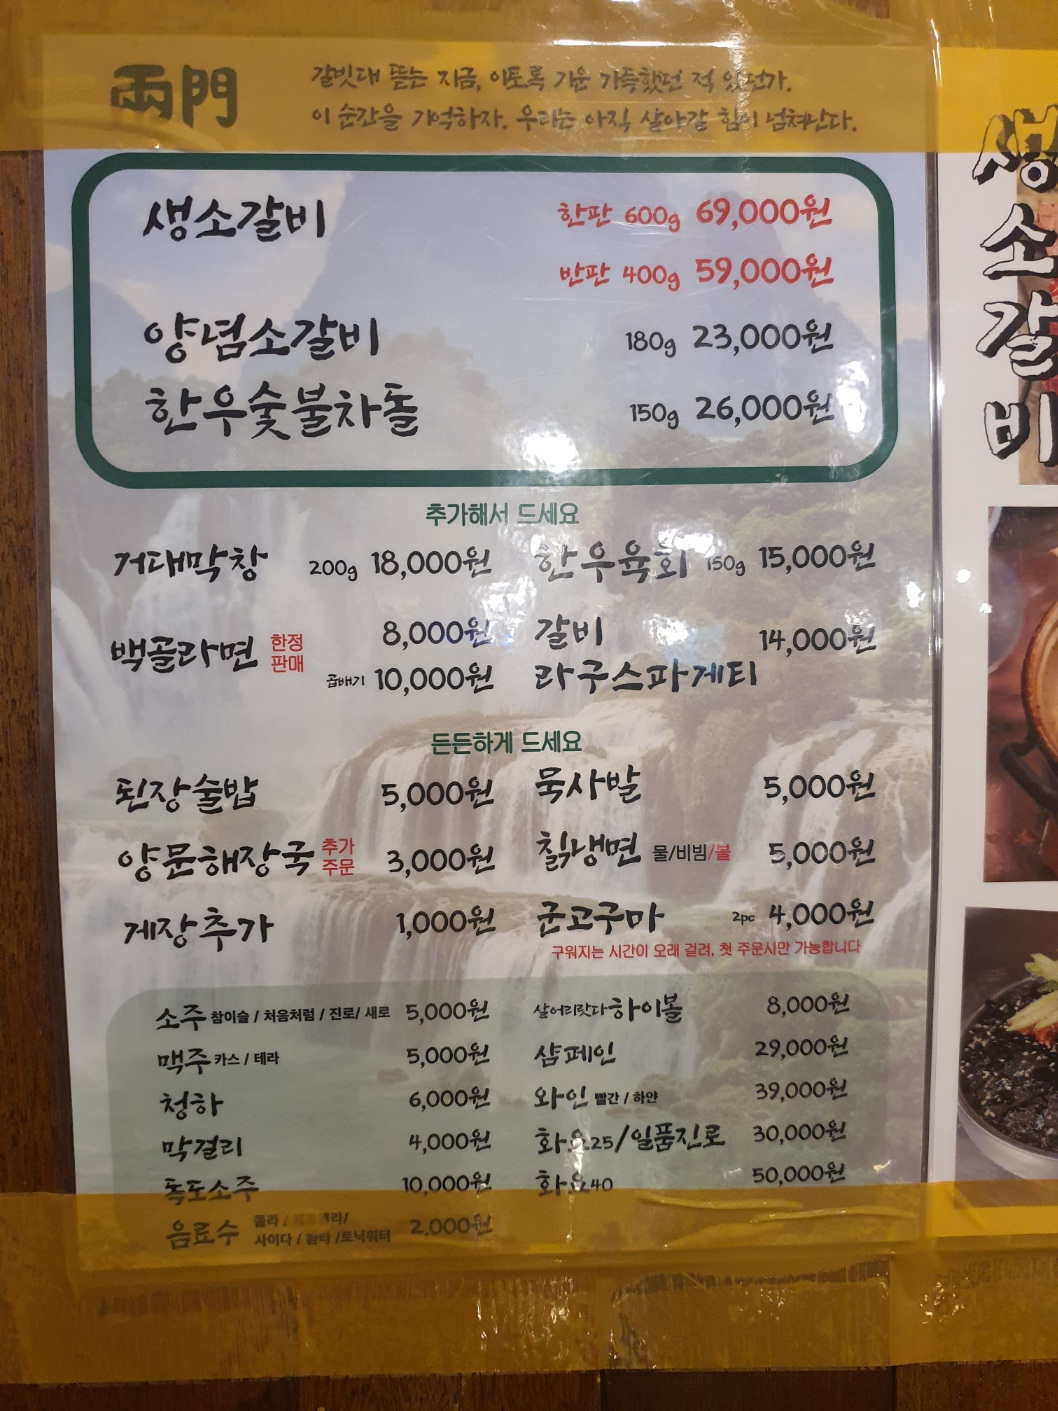 兩門
갈빗대 뜯는 지금, 이토록 기운 가득했던 적 있던가.
이 순간을 기억하자. 우리는 아직 살아갈 힘이 넘쳐난다.
생소갈비 한판 600g 69,000원
반판 400g 59,000원
양념소갈비 180g 23,000원
한우숯불차돌 150g 26,000원
추가해서 드세요
거대막창 200g 18,000원
한우육회 150g 15,000원
백골라면 한정 판매 8,000원
곱배기 10,000원
갈비 14,000원
라구스파게티
든든하게 드세요
된장술밥 5,000원
묵사발 5,000원
양문해장국 추가 주문 3,000원
칡냉면 물/비빔/불 5,000원
게장추가 1,000원
군고구마 2pc 4,000원
구워지는 시간이 오래 걸려, 첫 주문시만 가능합니다
소주 참이슬 / 처음처럼 / 진로/ 새로 5,000원
맥주 카스 / 테라 5,000원
청하 6,000원
막걸리 4,000원
독도소주 10,000원
음료수 콜라 / 라/
사이다 / 환타 /토닉워터 2,000원
살어리랏다하이볼 8,000원
샴페인 29,000원
와인 빨간 / 하얀 39,000원
화요25/일품진로 30,000원
화요40 50,000원
생
소
갈
비